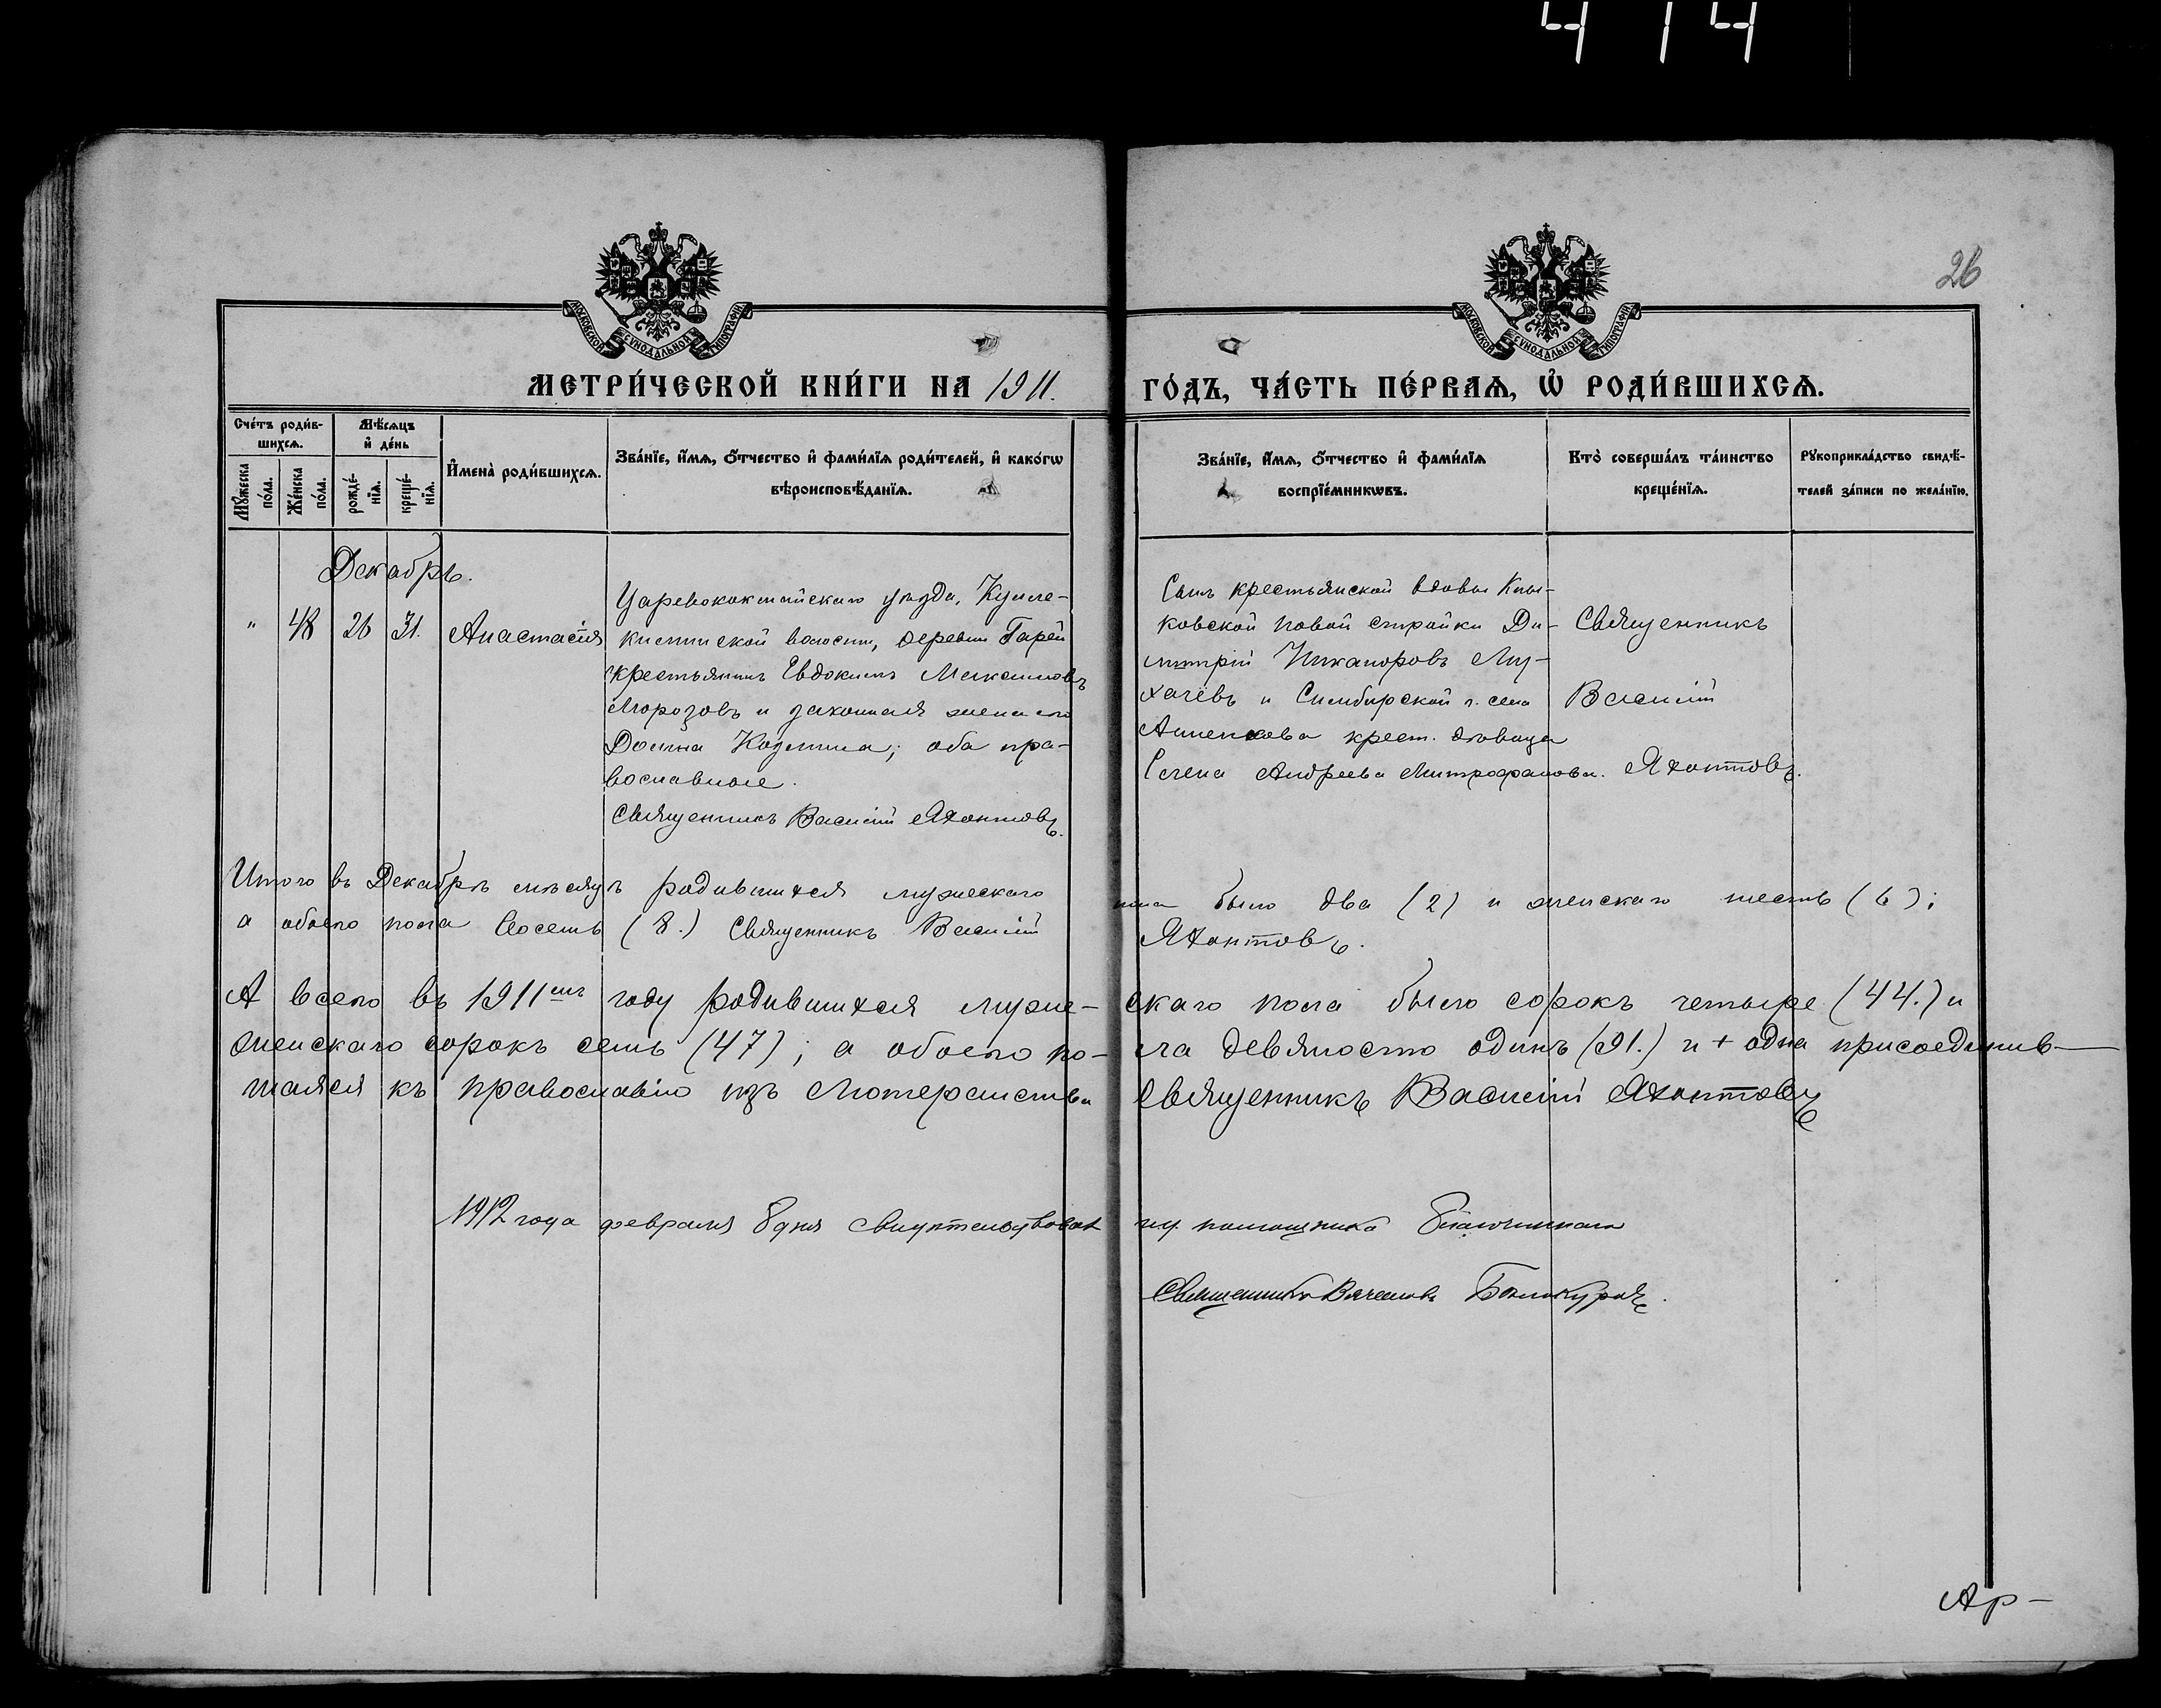 4 14
26
МОСКОВСКОЙ СѴНОДАЛЬНОЙ ТИПОГРАФІИ
МОСКОВСКОЙ СѴНОДАЛЬНОЙ ТИПОГРАФІИ
МЕТРИ́ЧЕСКОЙ КНИ́ГИ НА 1911.
ГО́ДЪ, ЧА́СТЬ ПЕ́РВАѦ, Ѡ҆ РОДИ́ВШИХСѦ.
Сче́тъ роди́в-
шихсѧ.
Мꙋ́жеска по́ла.
Же́нска по́ла.
Мѣ́сѧцъ
и҆ де́нь
рожде́-нїѧ.
креще́-нїѧ.
И҆мена̀ роди́вшихсѧ.
Зва́нїе, и҆́мѧ, ѻ҆́тчество и҆ фами́лїѧ роди́телей, и҆ како́гѡ
вѣроисповѣ́данїѧ.
Зва́нїе, и҆́мѧ, ѻ҆́тчество и҆ фами́лїѧ
воспрїе́мникѡвъ.
Кто̀ соверша́лъ та́инство
креще́нїѧ.
Рꙋкоприкла́дство свидѣ́-
телей за́писи по жела́нїю.
Декабрь.
" 48 26 31. Анастасія
Царевококшайскаго уѣзда, Кушле-
кистинской волости, деревни Гарей
крестьянинъ Евдокимъ Максимовъ
Морозовъ и законная жена его
Домна Козмина; оба пра-
вославные.
Священникъ Василій Яхонтовъ.
Сынъ крестьянской вдовы Кны-
ковской новой стройки Ди-
митрій Никаноровъ
и Симбирской г. села
Анненкова крест. дѣвица
Елена Андреева Митрофанова.
Священникъ
Василій
Яхонтовъ.
Итого въ Декабрѣ мѣсяцѣ родившихся мужескаго
пола было два (2) и женскаго шесть (6);
а обоего пола восемь (8.) Священникъ Василій
Яхонтовъ.
А всего въ 1911мъ году родившихся муже-
скаго пола было сорокъ четыре (44.) и
женскаго сорокъ семь (47); а обоего по-
ла девяносто одинъ (91.) и + одна присоединив-
шаяся къ православію изъ Лютеранства
Священникъ Василій Яхонтовъ
1912 года февраля 8 дня свидѣтельствовалъ
помощника благочиннаго
Священникъ Вячеславъ Бѣлокуровъ.
Ар-